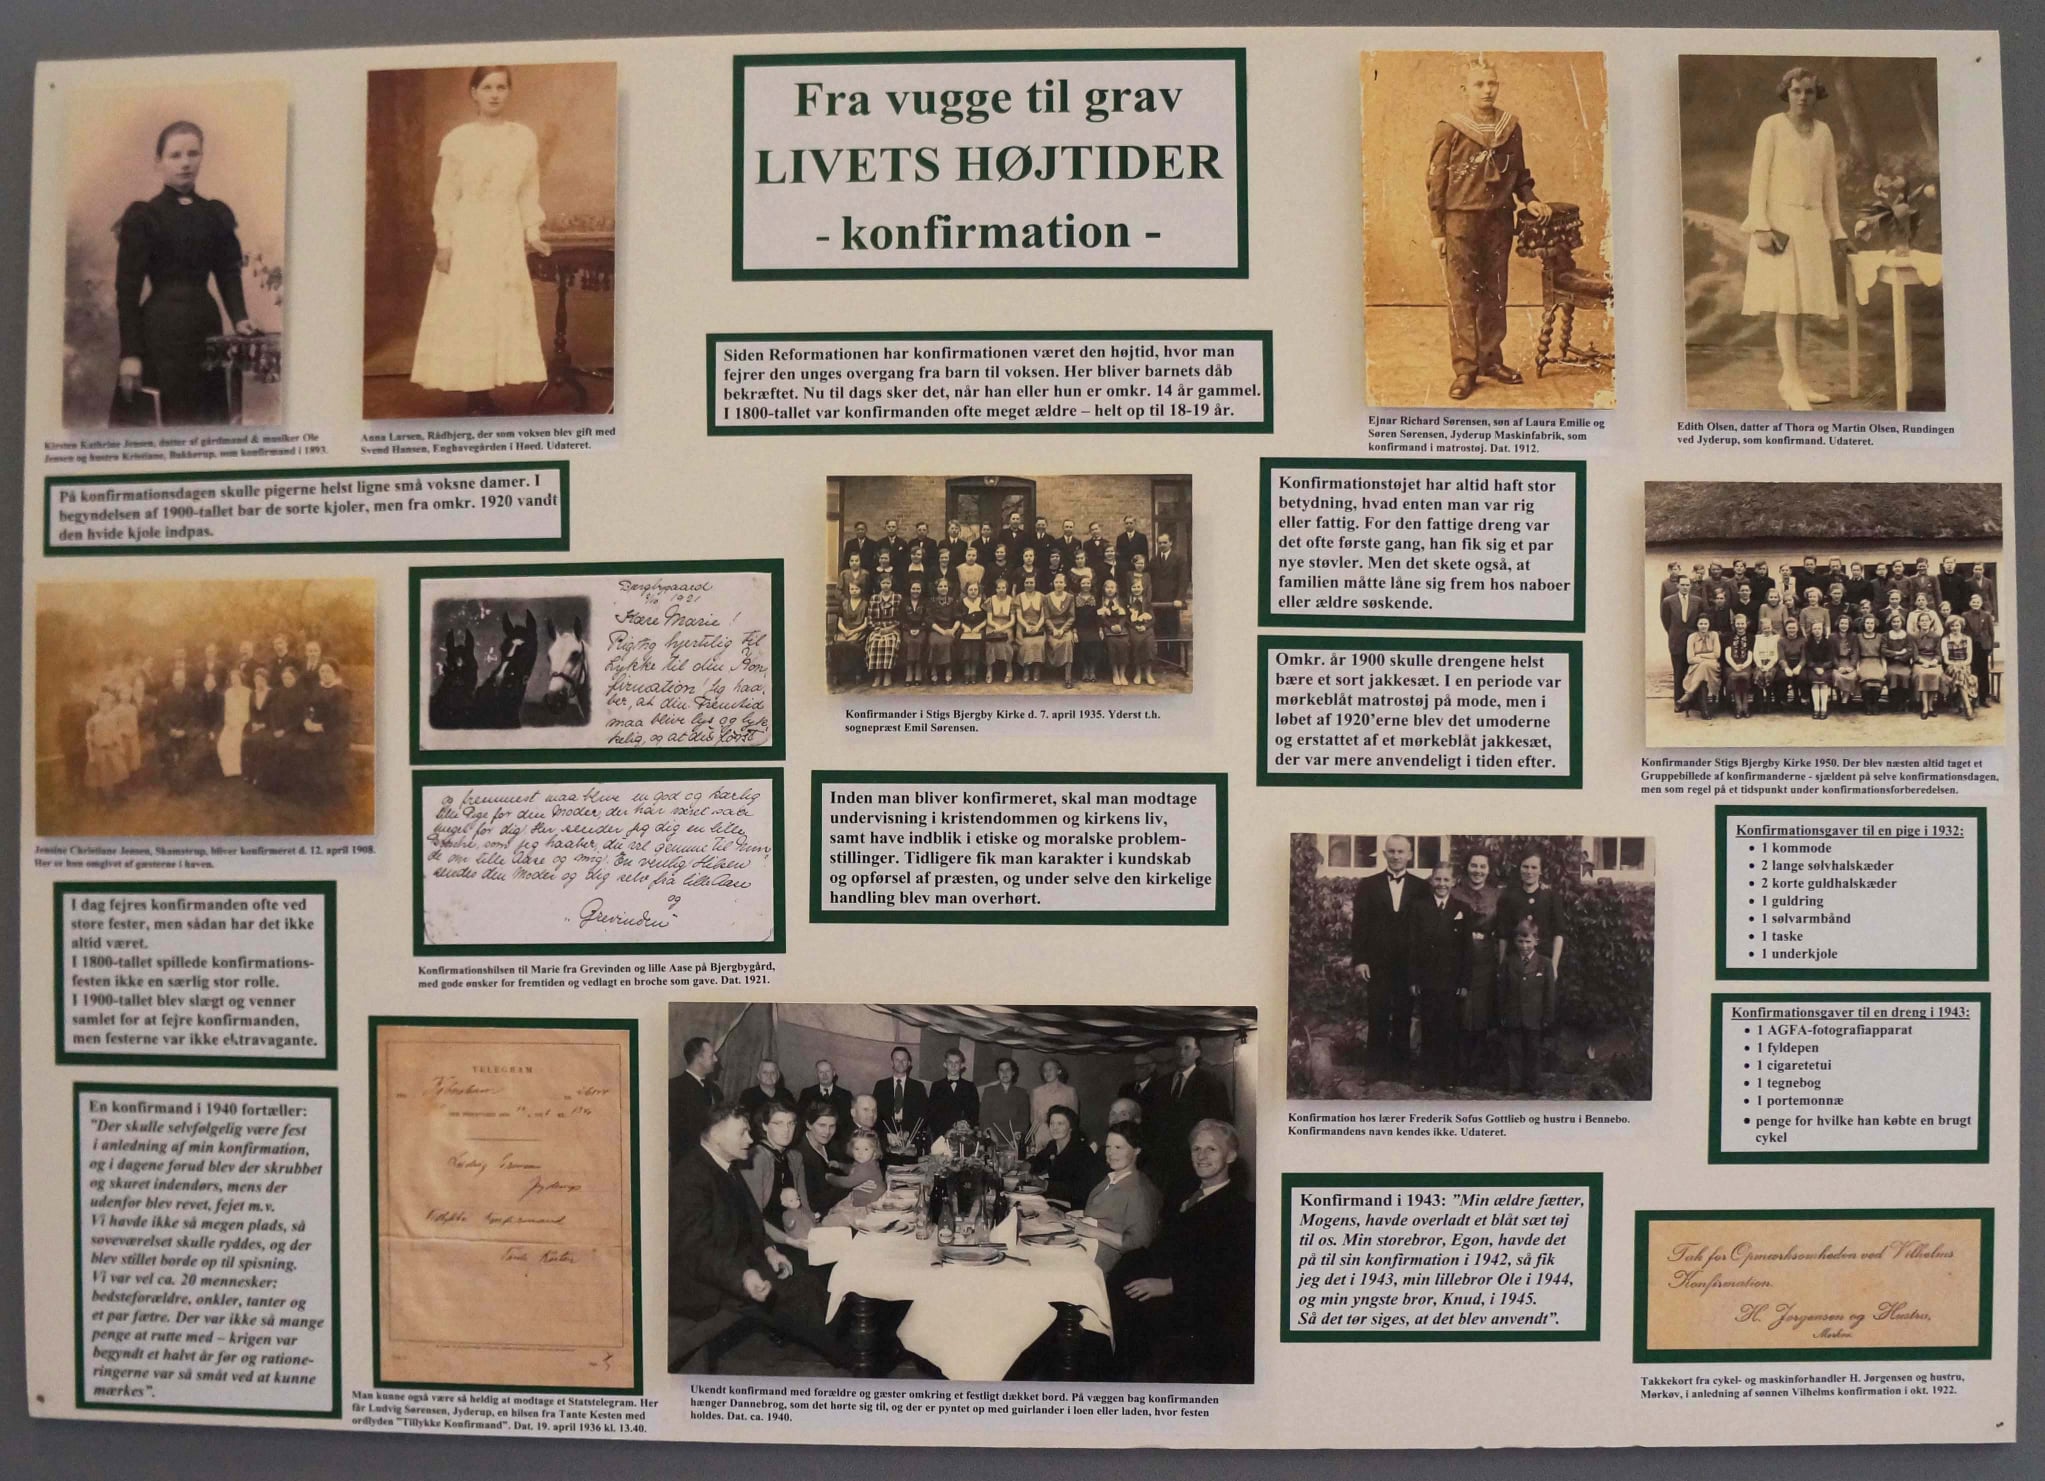 Fra vugge til grav
LIVETS HØJTIDER
- konfirmation -
Kirsten Kathrine Jensen, datter af gårdmand & musiker Ole
Jensen og hustru Kristiane, Bakkerup, som konfirmand i 1893.
Anna Larsen, Rådbjerg, der som voksen blev gift med
Svend Hansen, Enghavegården i Høed. Udateret.
Siden Reformationen har konfirmationen været den højtid, hvor man
fejrer den unges overgang fra barn til voksen. Her bliver barnets dåb
bekræftet. Nu til dags sker det, når han eller hun er omkr. 14 år gammel.
I 1800-tallet var konfirmanden ofte meget ældre – helt op til 18-19 år.
Ejnar Richard Sørensen, søn af Laura Emilie og
Søren Sørensen, Jyderup Maskinfabrik, som
konfirmand i matrostøj. Dat. 1912.
Edith Olsen, datter af Thora og Martin Olsen, Rundingen
ved Jyderup, som konfirmand. Udateret.
På konfirmationsdagen skulle pigerne helst ligne små voksne damer. I
begyndelsen af 1900-tallet bar de sorte kjoler, men fra omkr. 1920 vandt
den hvide kjole indpas.
Konfirmationstøjet har altid haft stor
betydning, hvad enten man var rig
eller fattig. For den fattige dreng var
det ofte første gang, han fik sig et par
nye støvler. Men det skete også, at
familien måtte låne sig frem hos naboer
eller ældre søskende.
Omkr. år 1900 skulle drengene helst
bære et sort jakkesæt. I en periode var
mørkeblåt matrostøj på mode, men i
løbet af 1920'erne blev det umoderne
og erstattet af et mørkeblåt jakkesæt,
der var mere anvendeligt i tiden efter.
Jensine Christiane Jensen, Skamstrup, bliver konfirmeret d. 12. april 1908.
Her er hun omgivet af gæsterne i haven.
Bjergbygaard
1921
Kære Marie!
Rigtig hjertelig til
Lykke til din Kon-
firmation! Jeg haa-
ber, at din Fremtid
maa blive lys og lyk-
kelig, og at du først
og fremmest maa blive en god og kærlig
lille Pige for din Moder, der har været saa
meget for dig. Her sender jeg dig en lille
Broche, som jeg haaber, du vil gemme til Minde
om lille Aase og mig. En venlig Hilsen
sendes din Moder og dig selv fra lille Aase
og
"Grevinden"
Konfirmationshilsen til Marie fra Grevinden og lille Aase på Bjergbygård,
med gode ønsker for fremtiden og vedlagt en broche som gave. Dat. 1921.
Konfirmander i Stigs Bjergby Kirke d. 7. april 1935. Yderst t.h.
sognepræst Emil Sørensen.
Inden man bliver konfirmeret, skal man modtage
undervisning i kristendommen og kirkens liv,
samt have indblik i etiske og moralske problem-
stillinger. Tidligere fik man karakter i kundskab
og opførsel af præsten, og under selve den kirkelige
handling blev man overhørt.
Konfirmander Stigs Bjergby Kirke 1950. Der blev næsten altid taget et
Gruppebillede af konfirmanderne - sjældent på selve konfirmationsdagen,
men som regel på et tidspunkt under konfirmationsforberedelsen.
Konfirmationsgaver til en pige i 1932:
• 1 kommode
• 2 lange sølvhalskæder
• 2 korte guldhalskæder
• 1 guldring
• 1 sølvarmbånd
• 1 taske
• 1 underkjole
Konfirmationsgaver til en dreng i 1943:
• 1 AGFA-fotografiapparat
• 1 fyldepen
• 1 cigaretetui
• 1 tegnebog
• 1 portemonnæ
• penge for hvilke han købte en brugt
cykel
I dag fejres konfirmanden ofte ved
store fester, men sådan har det ikke
altid været.
I 1800-tallet spillede konfirmations-
festen ikke en særlig stor rolle.
I 1900-tallet blev slægt og venner
samlet for at fejre konfirmanden,
men festerne var ikke ekstravagante.
En konfirmand i 1940 fortæller:
"Der skulle selvfølgelig være fest
i anledning af min konfirmation,
og i dagene forud blev der skrubbet
og skuret indendørs, mens der
udenfor blev revet, fejet m.v.
Vi havde ikke så megen plads, så
soveværelset skulle ryddes, og der
blev stillet borde op til spisning.
Vi var vel ca. 20 mennesker:
bedsteforældre, onkler, tanter og
et par fætre. Der var ikke så mange
penge at rutte med – krigen var
begyndt et halvt år før og ratione-
ringerne var så småt ved at kunne
mærkes".
TELEGRAM
København
Ludvig Sørensen
Jyderup
Tillykke Konfirmand
Tante Kesten
Man kunne også være så heldig at modtage et Statstelegram. Her
får Ludvig Sørensen, Jyderup, en hilsen fra Tante Kesten med
ordlyden "Tillykke Konfirmand". Dat. 19. april 1936 kl. 13.40.
Ukendt konfirmand med forældre og gæster omkring et festligt dækket bord. På væggen bag konfirmanden
hænger Dannebrog, som det hørte sig til, og der er pyntet op med guirlander i loen eller laden, hvor festen
holdes. Dat. ca. 1940.
Konfirmation hos lærer Frederik Sofus Gottlieb og hustru i Bennebo.
Konfirmandens navn kendes ikke. Udateret.
Konfirmand i 1943: "Min ældre fætter,
Mogens, havde overladt et blåt sæt tøj
til os. Min storebror, Egon, havde det
på til sin konfirmation i 1942, så fik
jeg det i 1943, min lillebror Ole i 1944,
og min yngste bror, Knud, i 1945.
Så det tør siges, at det blev anvendt".
Tak for Opmærksomheden ved Vilhelms
Konfirmation.
H. Jørgensen og Hustru,
Mørkøv.
Takkekort fra cykel- og maskinforhandler H. Jørgensen og hustru,
Mørkøv, i anledning af sønnen Vilhelms konfirmation i okt. 1922.